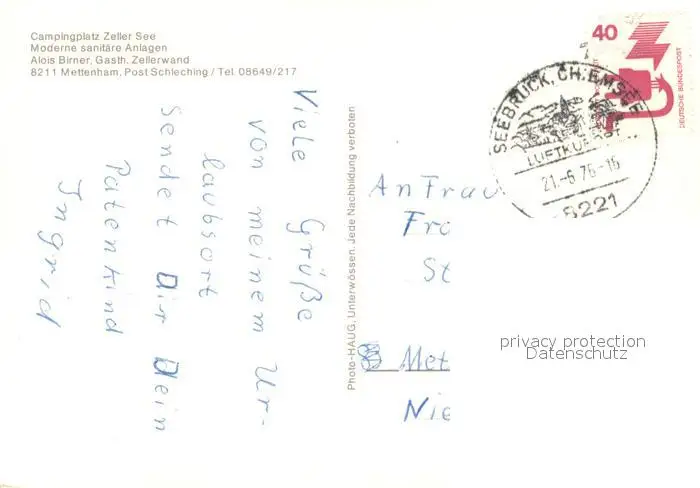 Campingplatz Zeller See
Moderne sanitäre Anlagen
Alois Birner, Gasth. Zellerwand
8211 Mettenham, Post Schleching / Tel. 08649/217
Viele Grüße
von meinem Ur-
laubsort
sendet Dir Dein
Patenkind
Ingrid
Photo-HAUG, Unterwössen. Jede Nachbildung verboten
40
DEUTSCHE BUNDESPOST
SEEBRUCK, CHIEMSEE
21.-6.76-16
8221
An Frau
Fro
St
Met
Nie
privacy protection
Datenschutz